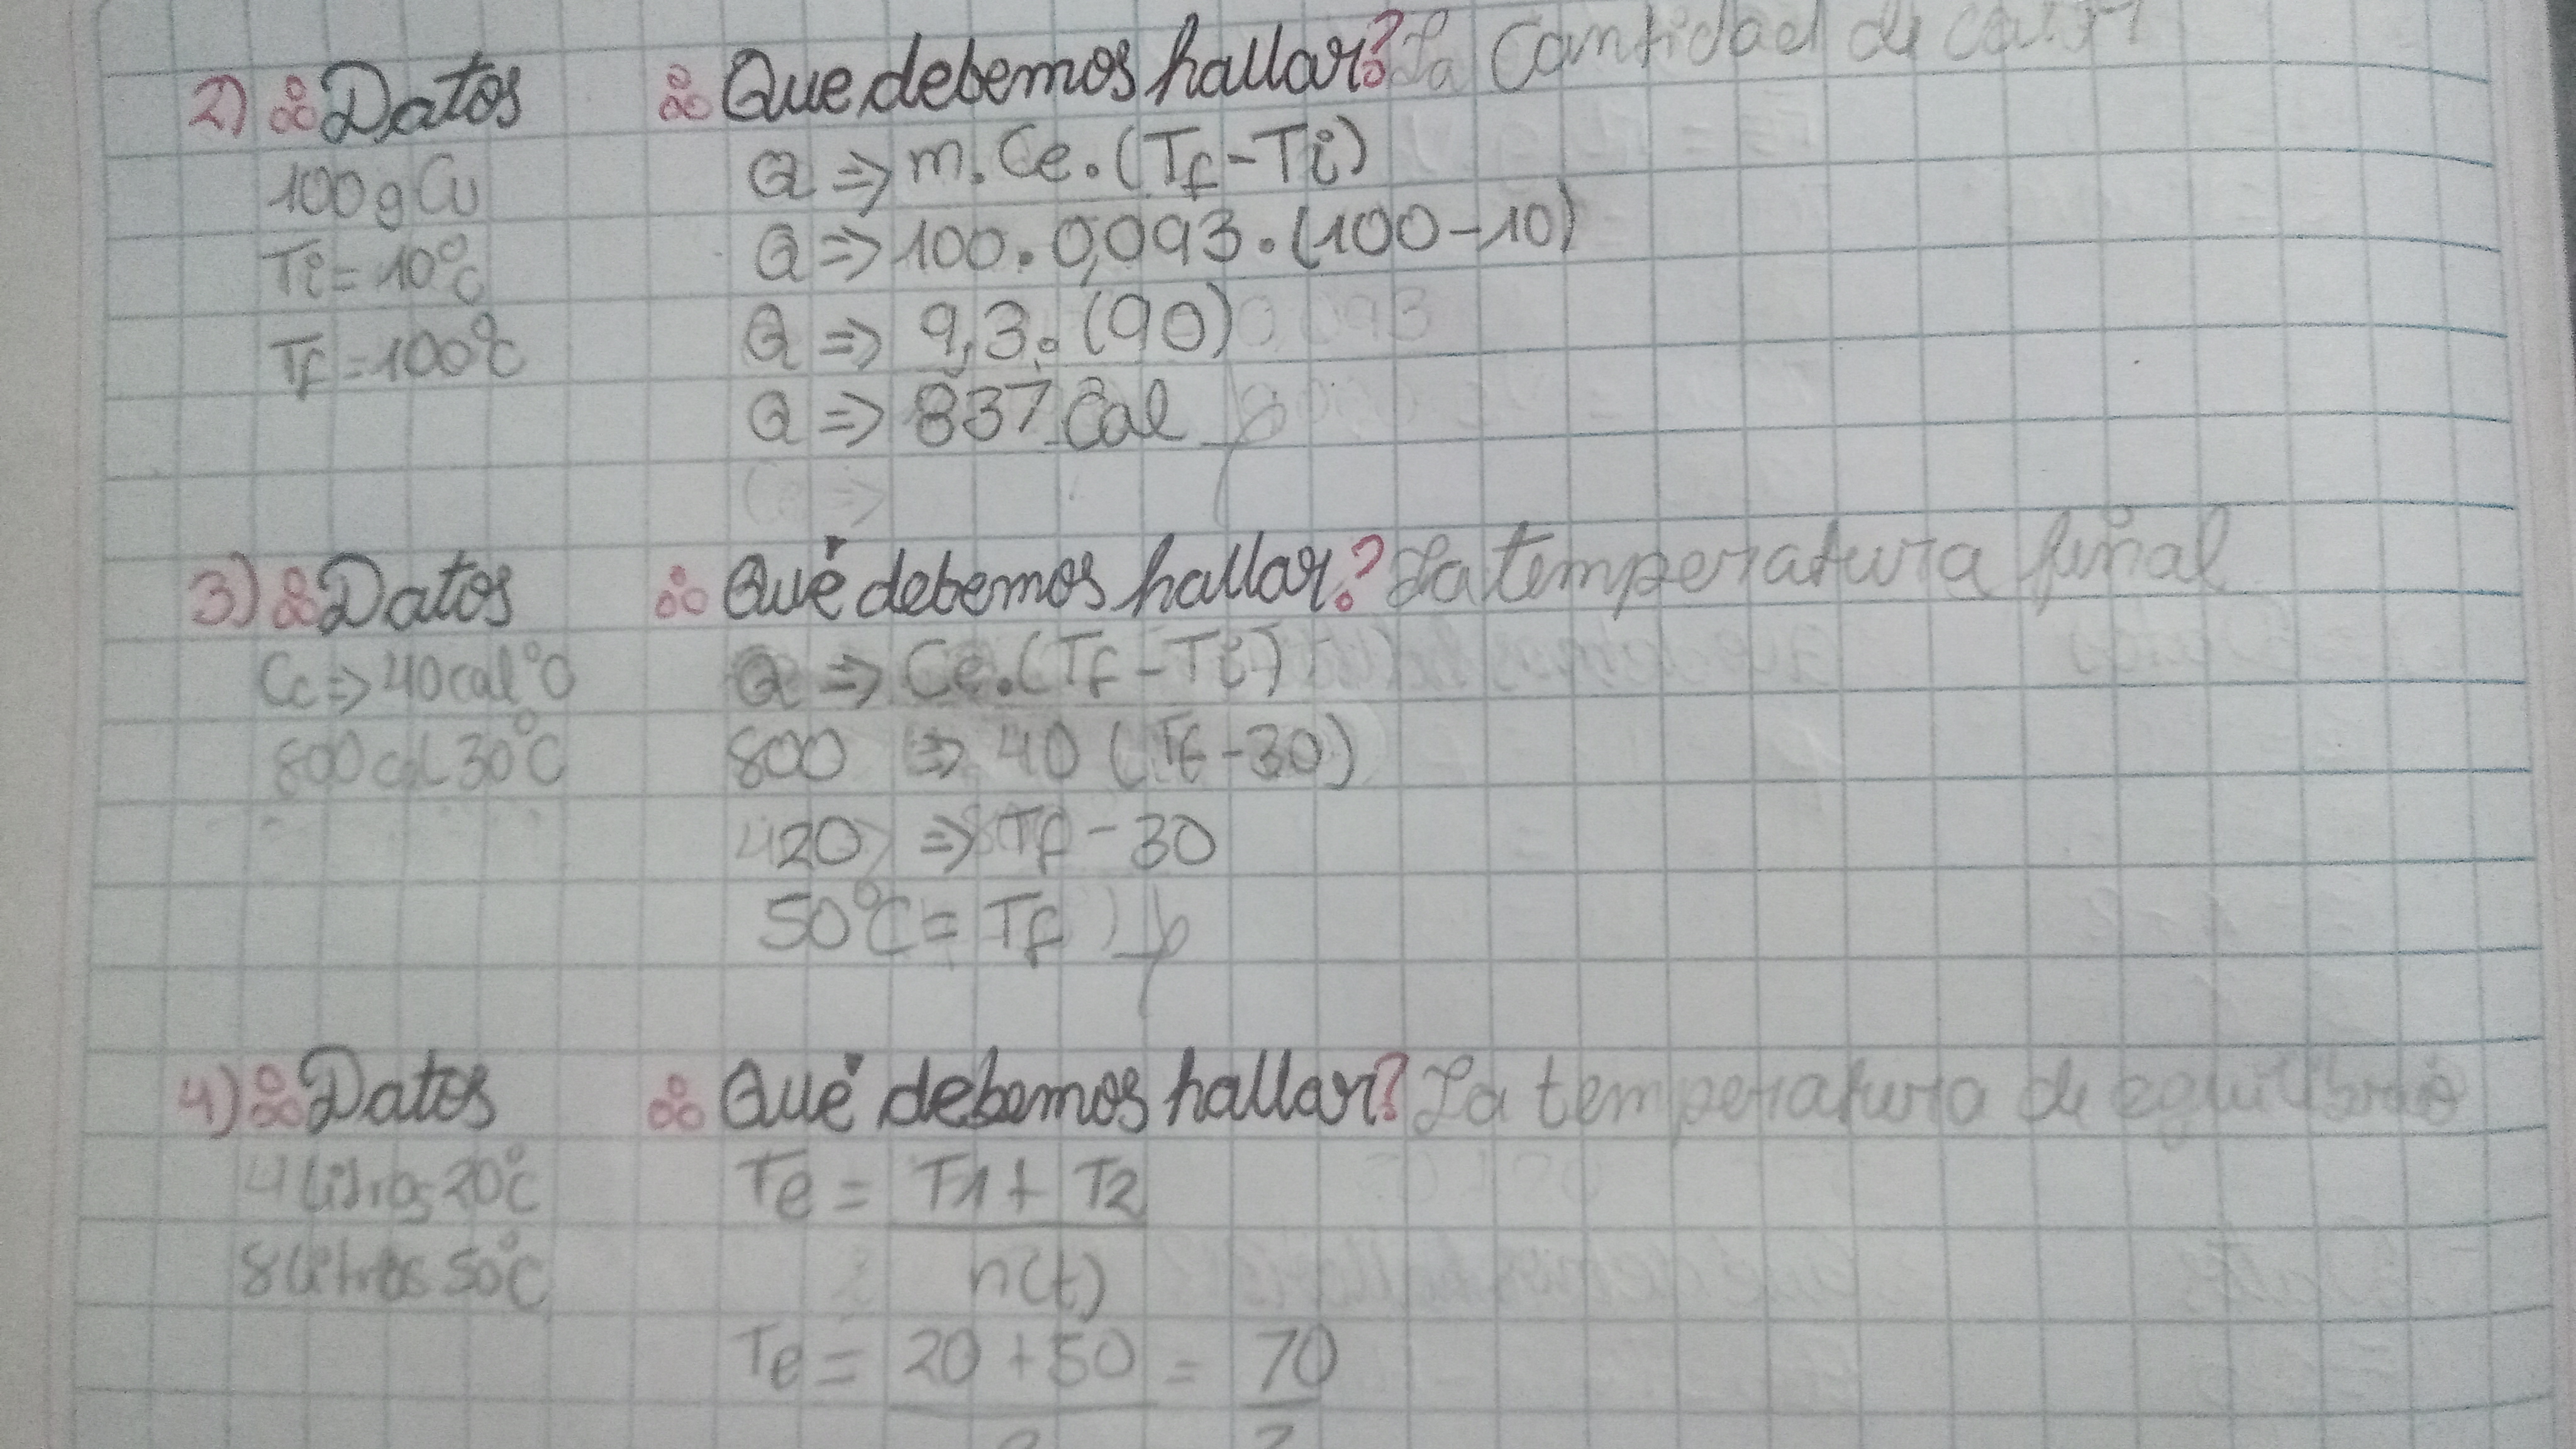 2) Datos
100g Cu
Ti = 10°C
Tf = 100°C
Que debemos hallar? La Cantidad de
Q => m.Ce.(Tf-Ti)
Q => 100.0,093.(100-10)
Q => 9,3.(90)
Q => 837 Cal
3) Datos
Cc => 40cal°C
800 cal 30°C
Qué debemos hallar? La temperatura final
Q => Ce.(Tf-Ti)
800 => 40 (Tf-30)
420 => Tf - 30
50°C = Tf
4) Datos
4 litros 20°C
8 litros 50°C
Qué debemos hallar? La temperatura de equilibrio
Te = T1 + T2
n(t)
Te = 20 + 50 = 70